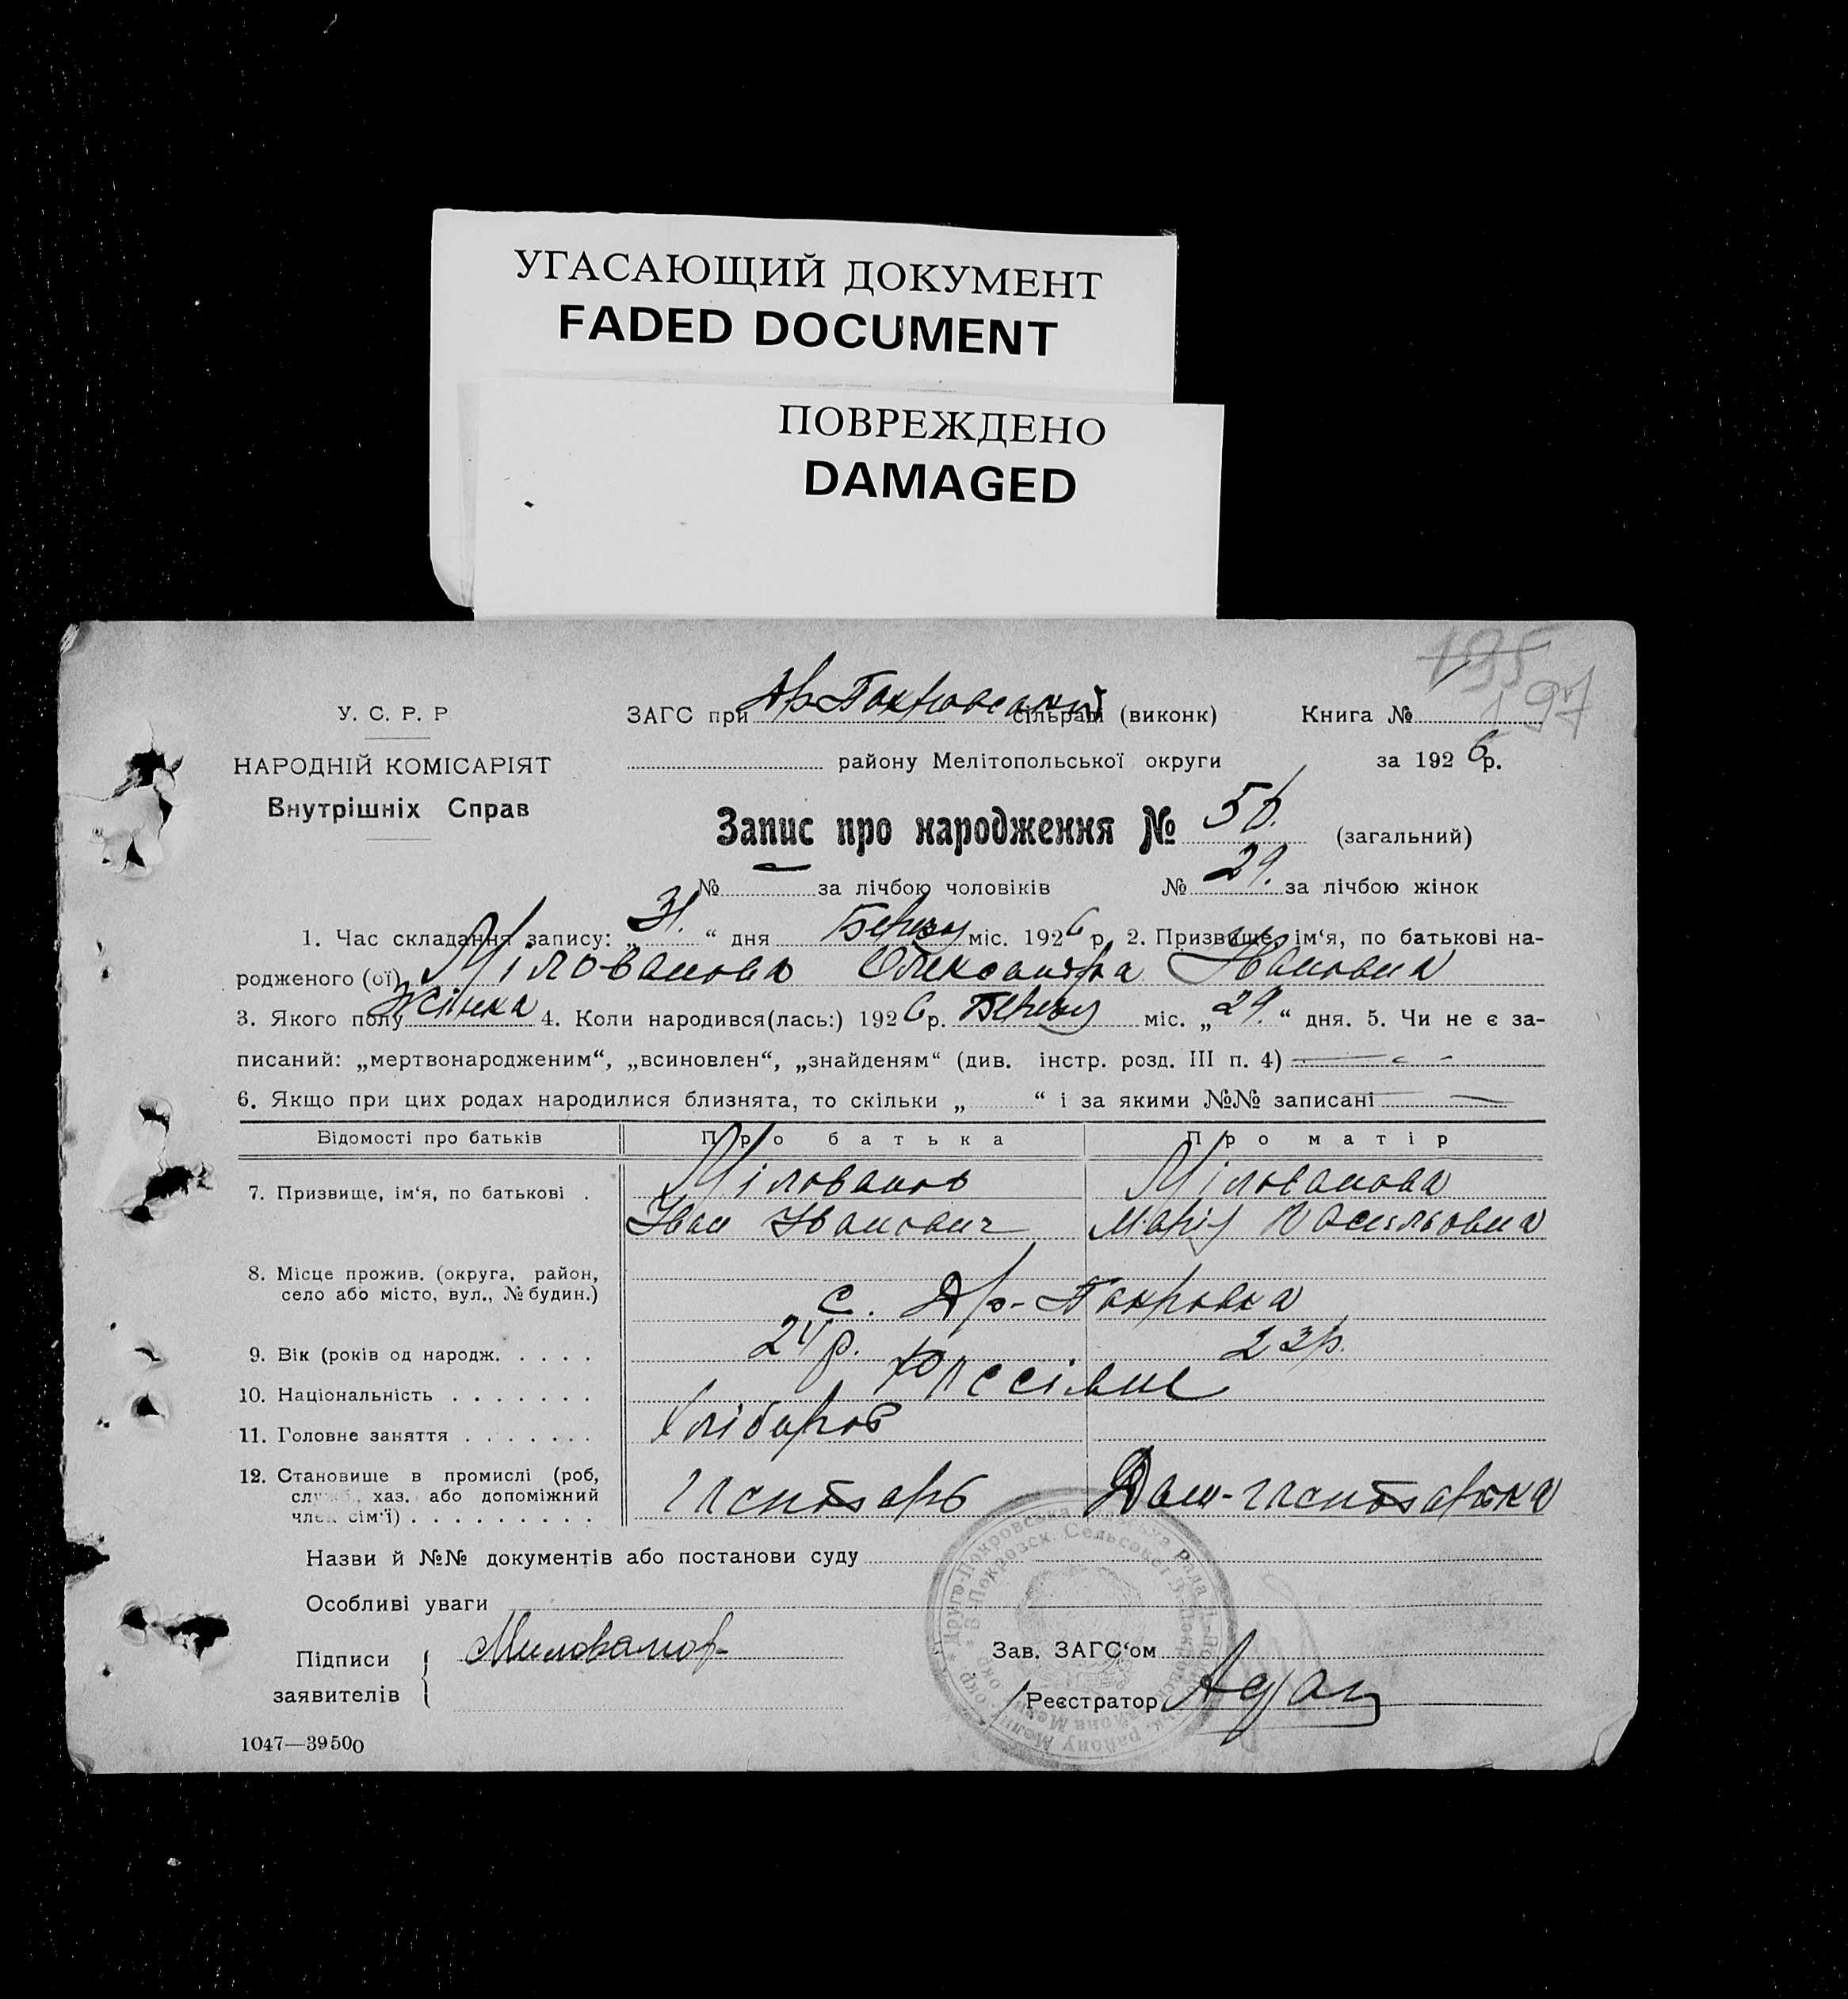 УГАСАЮЩИЙ ДОКУМЕНТ
FADED DOCUMENT
ПОВРЕЖДЕНО
DAMAGED
195
197
У. С. Р. Р
НАРОДНІЙ КОМІСАРІЯТ
Внутрішніх Справ
ЗАГС при Др-Покровський сільраді (виконк) Книга №
району Мелітопольської округи за 1926 р.
Запис про народження № 56. (загальний)
№ — за лічбою чоловіків № 29. за лічбою жінок
1. Час складання запису: „31.“ дня Березня міс. 1926 р. 2. Призвище, ім‘я, по батькові на-
родженого (ої) Мілованова Олександра Івановна
3. Якого полу Жінка 4. Коли народився(лась:) 1926 р. Березня міс. „29.“ дня. 5. Чи не є за-
писаний: „мертвонародженим“, „всиновлен“, „знайденям“ (див. інстр. розд. III п. 4) —
6. Якщо при цих родах народилися близнята, то скільки „ “ і за якими №№ записані —
Відомості про батьків Про батька Про матір
7. Призвище, ім‘я, по батькові . Мілованов Мілованова
Іван Іванович Марія Васильовна
8. Місце прожив. (округа, район,
село або місто, вул., № будин.) с. Др-Покровка
9. Вік (років од народж. . . . . 24 р. 23 р.
10. Національність . . . . . . .
11. Головне заняття . . . . . . . Хлібороб
12. Становище в промислі (роб,
служб., хаз. або допоміжний
член сім‘ї) . . . . . . . . . Дом-
Назви й №№ документів або постанови суду
Особливі уваги
Підписи Милованов
заявителів
Зав. ЗАГС‘ом
Реєстратор
1047—39500